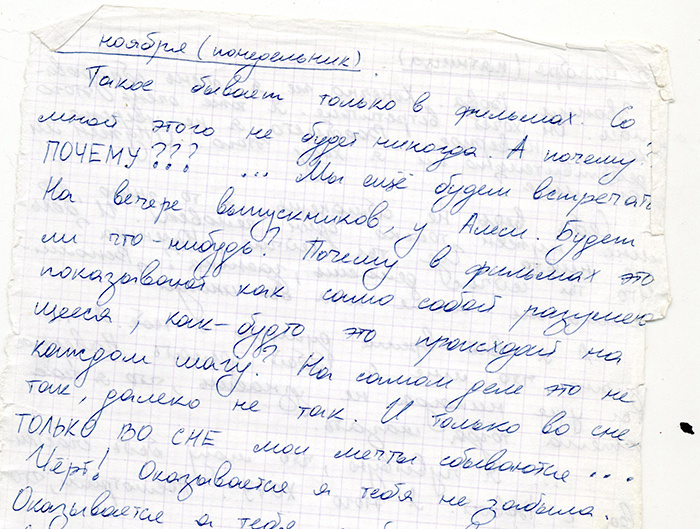 ноября (понедельник).
Такое бывает только в фильмах. Со
мной этого не будет никогда. А почему?
ПОЧЕМУ??? ... Мы ещё будем встречать
На вечере выпускников, у Алеси. Будет
ли что-нибудь? Почему в фильмах это
показывают как само собой разумею
щееся, как-будто это происходит на
каждом шагу? На самом деле это не
так, далеко не так. И только во сне
ТОЛЬКО ВО СНЕ мои мечты сбываются...
Чёрт! Оказывается я тебя не забыла.
Оказывается я тебя